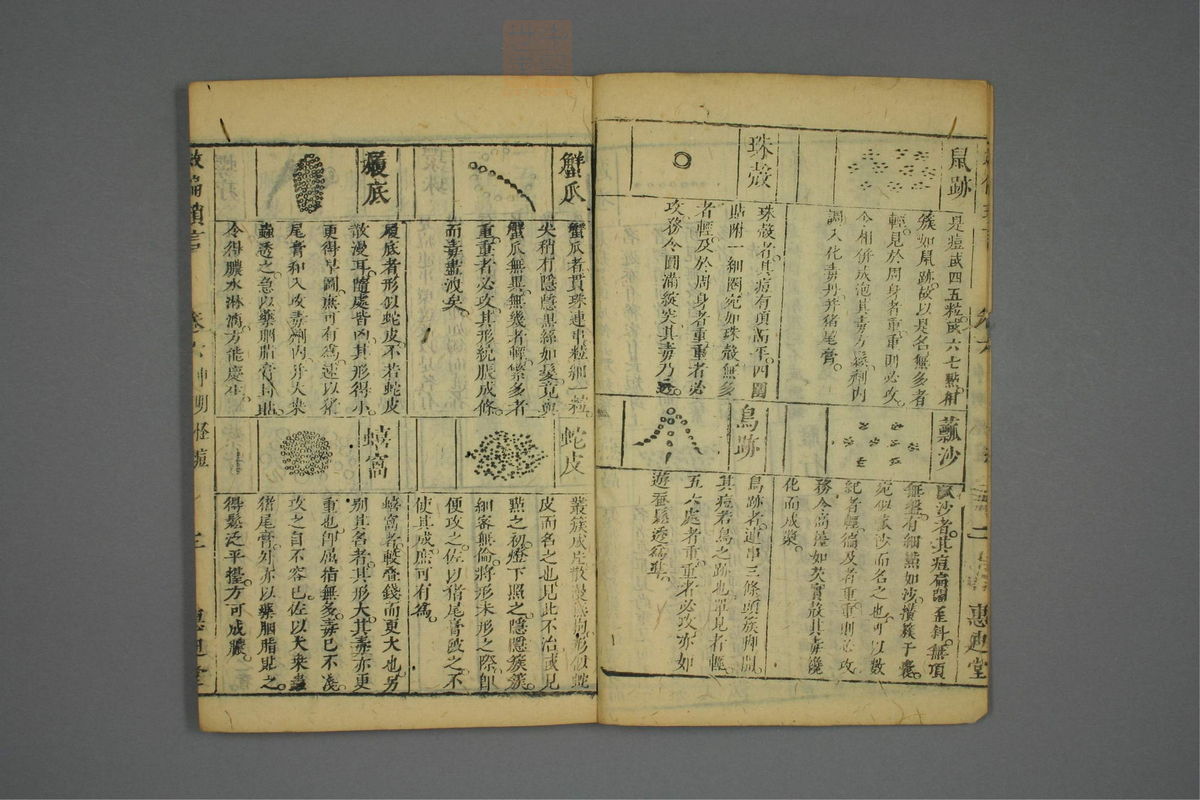 鼠跡
是痘或四五粒或六七點附
簇如鼠跡故以是名無多者
輕見於周身者重重則必攻
令相併成泡其毒方鬆劑內
調入化毒丹并猪尾膏
珠殼
珠殼者其痘有頂高平四圍
貼附一細圈宛如珠殼無多
者輕及於周身者重重者必
攻務令圓滿綻突其毒乃
瓢沙
沙者其痘扁闊歪斜無頂
無盤有細點如沙攢簇于
宛似瓢沙而名之也可以數
紀者輕徧及者重重則必攻
務令高擡如芡實殼其毒纔
化而成漿
鳥跡
鳥跡者連串三條頭簇脚開
其痘若鳥之跡也單見者輕
五六處者重重者必攻亦如
遊蚕鬆透
惠迪堂
蟹爪
蟹爪者貫珠連串粒細一粒
尖稍有隱隱黑絲如髮竟與
蟹爪無異無幾者輕繁多者
重重者必攻其形統脹成條
而毒盡洩矣
履底
履底者形似蛇皮不若蛇皮
散漫耳隨處皆凶其形得小
更得早圖庶可有為速以猪
尾膏和入攻毒劑內并大桒
蟲透之急以藥胭脂膏封貼
令得膿水淋漓方能慶生
蛇皮
叢簇成片散漫無拘形似蛇
皮而名之也見此不治或見
點之初燈下照之隱隱簇簇
細密無倫將形未形之際卽
便攻之佐以猪尾膏啟之不
使其成庶可有為
蟢窩
蟢窩者較叠錢而更大也另
別其名者其形大其毒亦更
重也卽屈指無多毒已不淺
攻之自不容已佐以大桒蟲
猪尾膏外亦以藥胭脂貼之
得鬆泛平擡方可成膿
救偏瑣言
卷六神明怪痘
惠迪堂